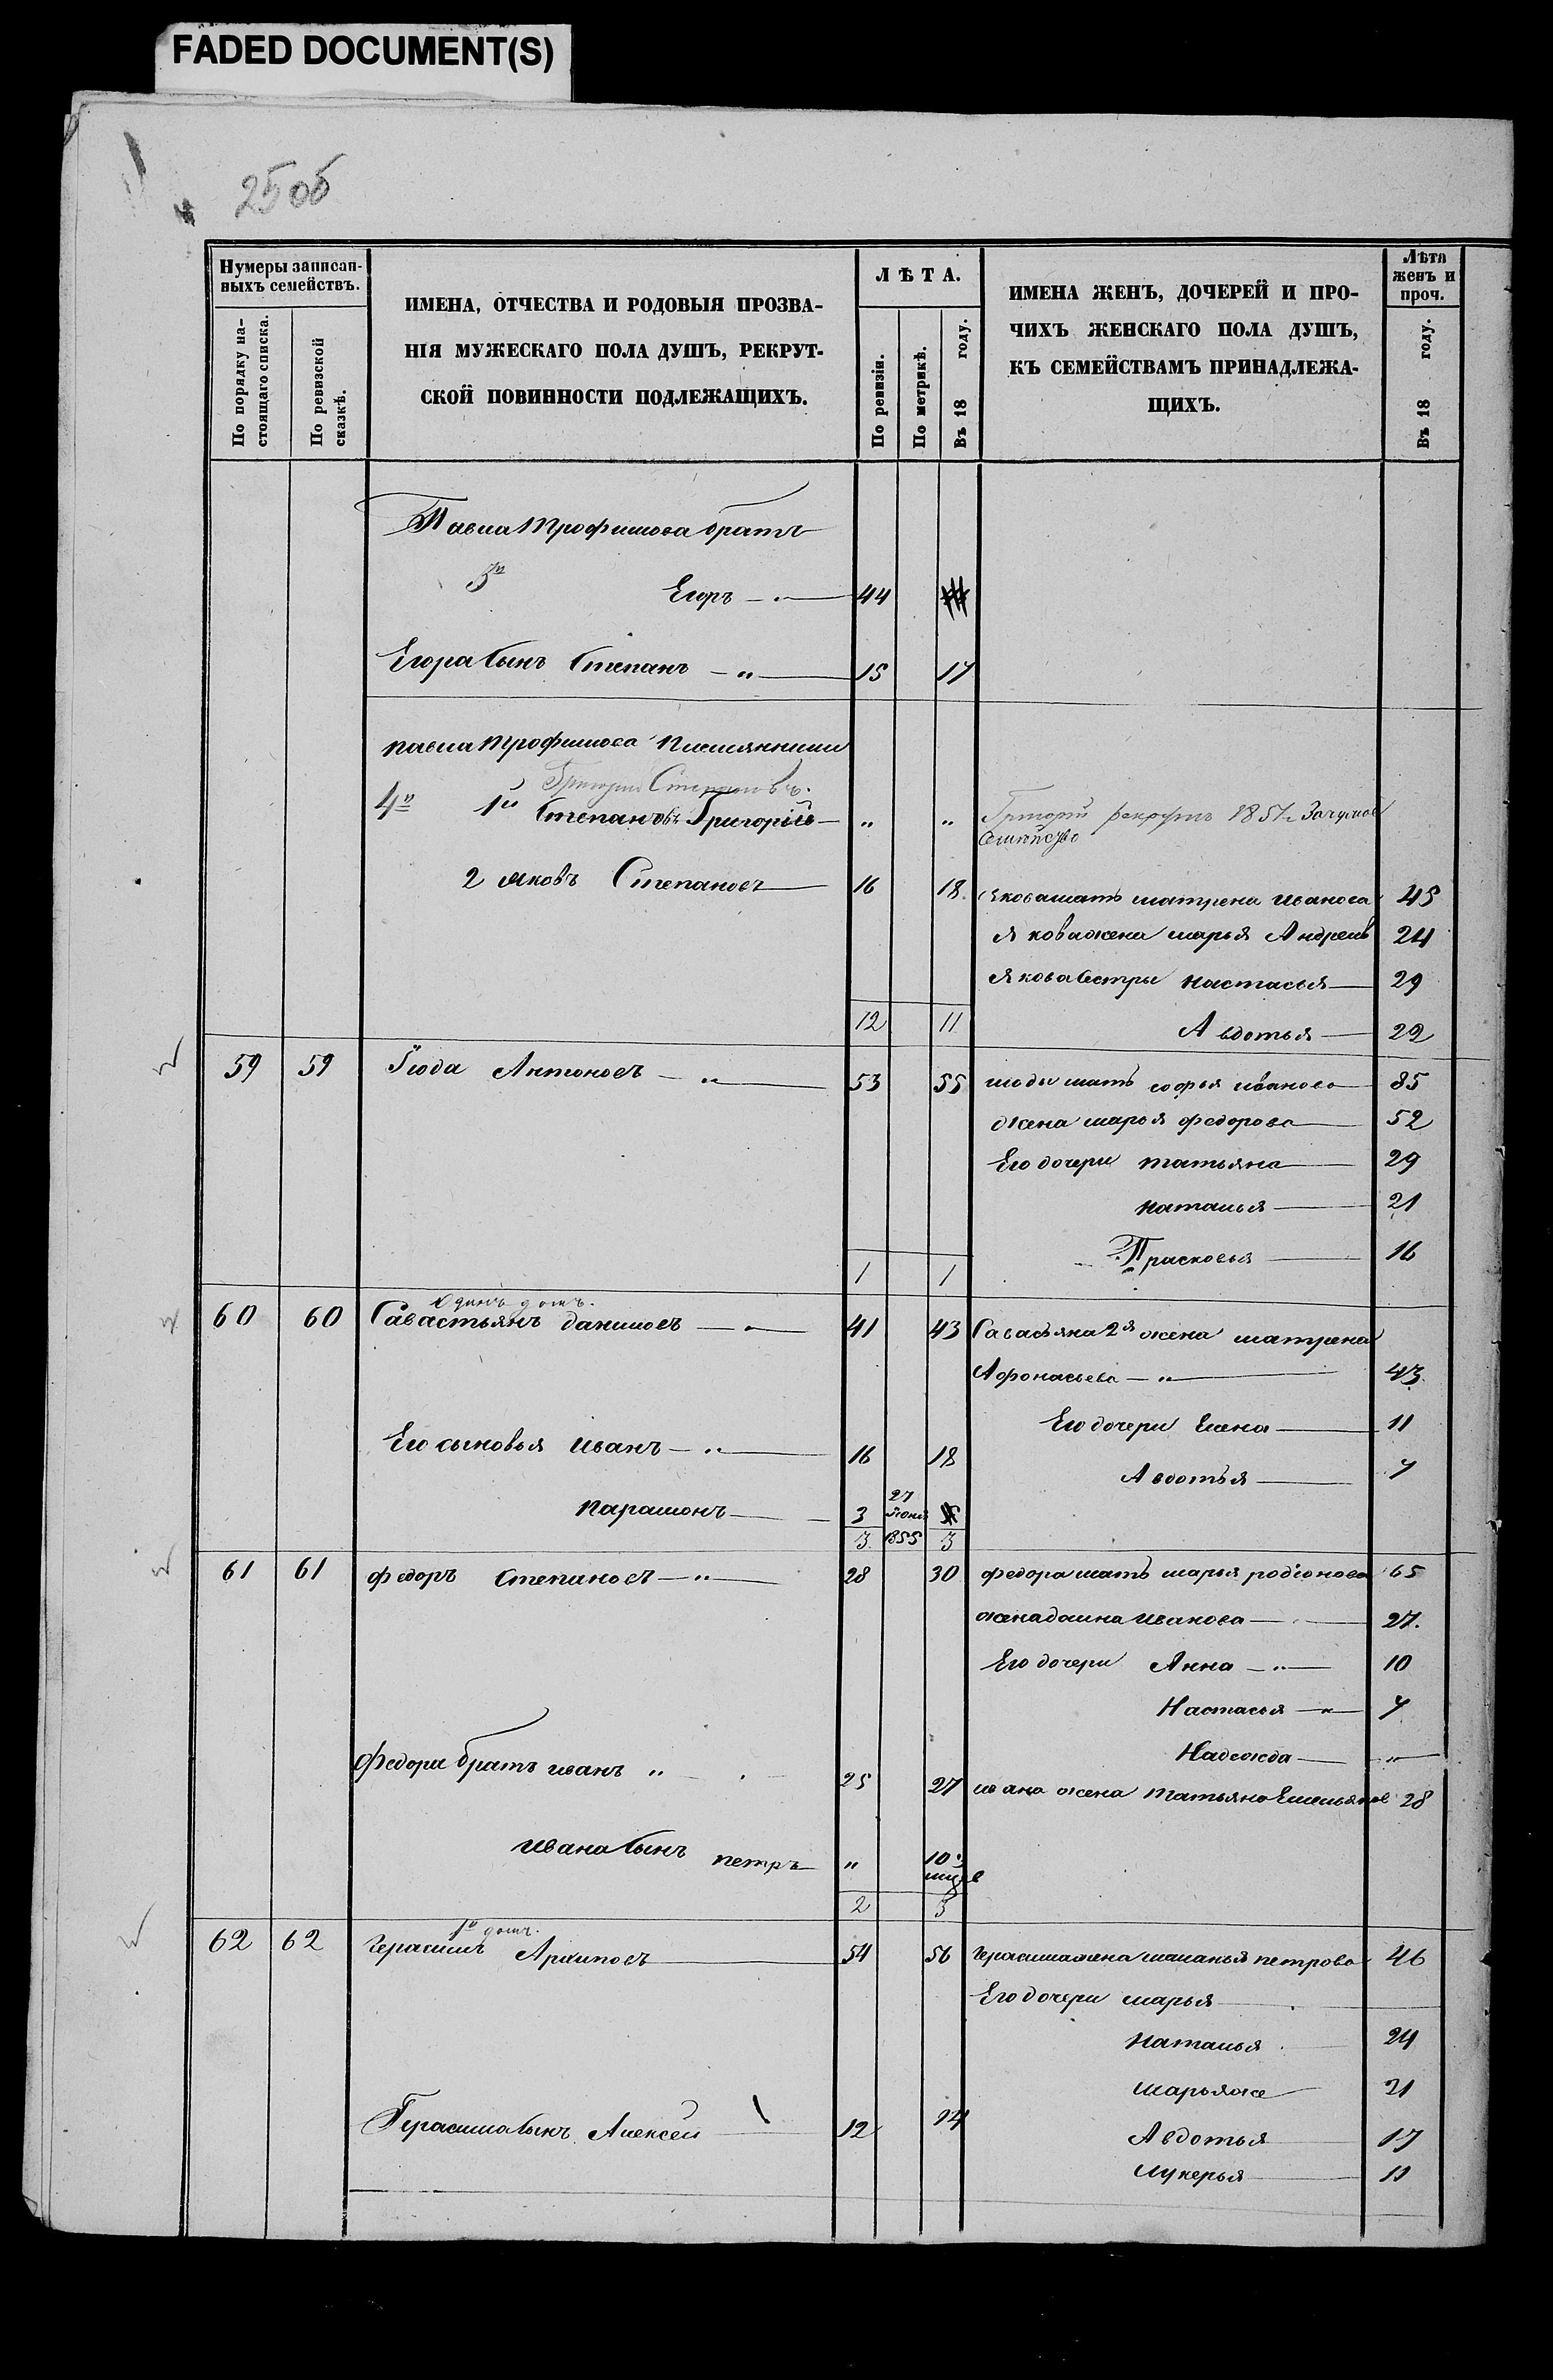 FADED DOCUMENT(S)
25 об
Нумеры записан-
ныхъ семействъ.
По порядку на-
стоящаго списка.
По ревизской
сказкѣ.
ИМЕНА, ОТЧЕСТВА И РОДОВЫЯ ПРОЗВА-
НІЯ МУЖЕСКАГО ПОЛА ДУШЪ, РЕКРУТ-
СКОЙ ПОВИННОСТИ ПОДЛЕЖАЩИХЪ.
ЛѢТА.
По ревизіи.
По метрикѣ.
Въ 18 году.
ИМЕНА ЖЕНЪ, ДОЧЕРЕЙ И ПРО-
ЧИХЪ ЖЕНСКАГО ПОЛА ДУШЪ,
КЪ СЕМЕЙСТВАМЪ ПРИНАДЛЕЖА-
ЩИХЪ.
Лѣта
женъ и
проч.
Въ 18 году.
Павла Трофимова братъ
3й Егоръ — „ — 44
Егора Сынъ Степанъ — „ — 15 17
павла трофимова племянники
Григорій Степановъ.
4й 1й Степановъ Григорій — „ „ Григорій рекрутъ 1851 За
семейство
2 яковъ Степановъ — 16 18 якова мать матрена иванова 45
якова жена марья Андреев 24
якова Сестры настасья — 29
12 11 Авдотья — 22
59 59 Іюда Антоновъ — „ — 53 55 июды мать софья иванова 85
жена марья федорова — 52
Его дочери татьяна — 29
наталья — 21
1 1 Прасковья — 16
Одинъ домъ.
60 60 Савастьянъ даниловъ — „ — 41 43 Савасьяна 2я жена матрена
Афонасьева — „ — 43
Его дочери Елена — 11
Его сыновья иванъ — „ — 16 18
Авдотья — 7
парамонъ — 3 27 Іюня 1855 5
3 3
61 61 федоръ степановъ — „ — 28 30 федора мать марья родіонова 65
жена домна иванова — 27.
Его дочери Анна — „ — 10
Настасья — „ — 7
Надежда — „
федора братъ иванъ „ — 25 27 ивана жена татьяна Емельянов 28
ивана Сынъ петръ — „ 10
2 3
1й домъ.
62 62 Герасимъ Архиповъ — 54 56 Герасима жена маланья петрова 46
Его дочери марья —
наталья — 24
марьяна — 21
Герасима Сынъ Алексей — 12 14
Авдотья — 17
Лукерья — 11